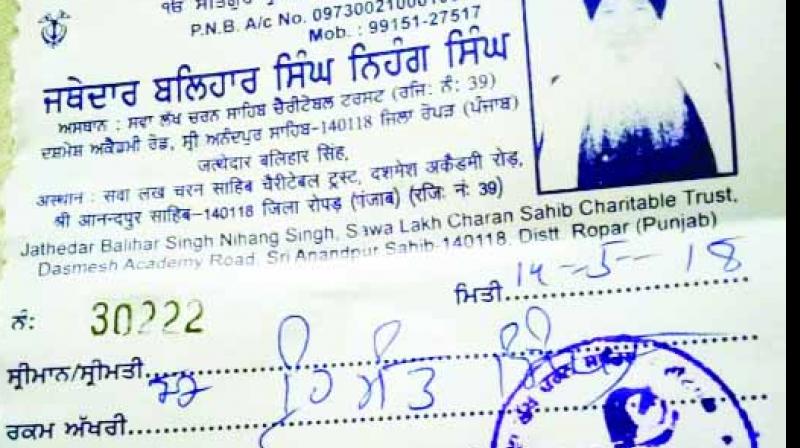 ੴ ਸਤਿਗੁਰ
P.N.B. A/c No. 09730021000
Mob. : 99151-27517
ਜਥੇਦਾਰ ਬਲਿਹਾਰ ਸਿੰਘ ਨਿਹੰਗ ਸਿੰਘ
ਅਸਥਾਨ : ਸਵਾ ਲੱਖ ਚਰਨ ਸਾਹਿਬ ਚੈਰੀਟੇਬਲ ਟਰਸਟ (ਰਜਿ: ਨੰ: 39)
ਦਸ਼ਮੇਸ਼ ਅਕੈਡਮੀ ਰੋਡ, ਸ੍ਰੀ ਅਨੰਦਪੁਰ ਸਾਹਿਬ-140118 ਜਿਲਾ ਰੋਪੜ (ਪੰਜਾਬ)
ਜਤਥੇਦਾਰ ਬਲਿਹਾਰ ਸਿੰਹ,
अस्थान : सवा लख चरन साहिब चैरीटेबल ट्रस्ट, दशमेश अकैडमी रोड़,
श्री आनन्दपुर साहिब-140118 जिला रोपड़ (पंजाब) (रजि: नं: 39)
Jathedar Balihar Singh Nihang Singh, Sawa Lakh Charan Sahib Charitable Trust,
Dasmesh Academy Road, Sri Anandpur Sahib-140118, Distt. Ropar (Punjab)
ਨੰ: 30222
ਮਿਤੀ 14-5-18
ਸ੍ਰੀਮਾਨ/ਸ੍ਰੀਮਤੀ
ਰਕਮ ਅੱਖਰੀ